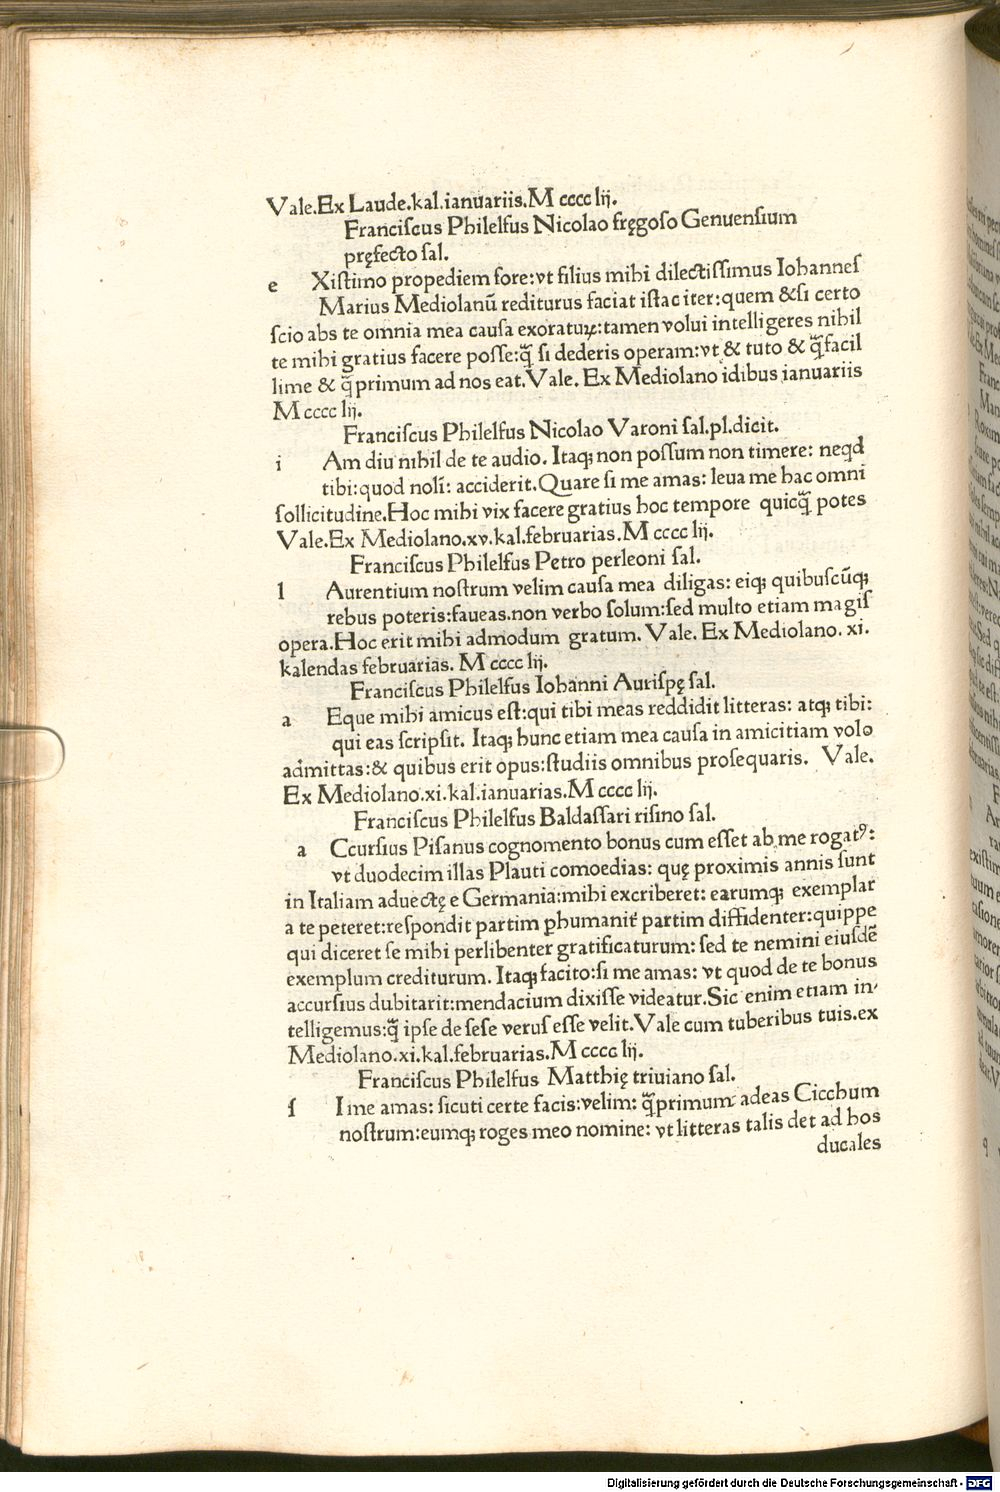 Vale.Ex Laude.kal.ianuariis.M cccc lij.
Franciſcus Philelfus Nicolao fręgoſo Genuenſium
pręfecto ſal.
e Xiſtimo propediem fore:vt filius mihi dilectiſſimus Iohanneſ
Marius Mediolanū rediturus faciat iſtac iter:quem &ſi certo
ſcio abs te omnia mea cauſa exoratuꝝ:tamen volui intelligeres nihil
te mihi gratius facere poſſe:q̄ſi dederis operam:vt & tuto & q̄facil
lime & q̄primum ad nos eat.Vale. Ex Mediolano idibus ianuariis
M cccc lij.
Franciſcus Philelfus Nicolao Varoni ſal.pl.dicit.
i Am diu nihil de te audio. Itaqꝫ non poſſum non timere: neqd
tibi:quod noli: acciderit.Quare ſi me amas: leua me hac omni
ſollicitudine.Hoc mihi vix facere gratius hoc tempore quicq̄ potes
Vale.Ex Mediolano.xv.kal.februarias.M cccc lij.
Franciſcus Philelfus Petro perleoni ſal.
l Aurentium noſtrum velim cauſa mea diligas: eiqꝫ quibuſcūqꝫ
rebus poteris:faueas.non verbo ſolum:ſed multo etiam magiſ
opera.Hoc erit mihi admodum gratum. Vale. Ex Mediolano. xi.
kalendas februarias. M cccc lij.
Franciſcus Philelfus Iohanni Auriſpę ſal.
a Eque mihi amicus eſt:qui tibi meas reddidit litteras: atqꝫ tibi:
qui eas ſcripſit. Itaqꝫ hunc etiam mea cauſa in amicitiam volo
admittas:& quibus erit opus:ſtudiis omnibus proſequaris. Vale.
Ex Mediolano.xi.kal.ianuarias.M cccc lij.
Franciſcus Philelfus Baldaſſari riſino ſal.
a Ccurſius Piſanus cognomento bonus cum eſſet ab me rogatꝰ:
vt duodecim illas Plauti comoedias: quę proximis annis ſunt
in Italiam aduectę e Germania:mihi excriberet: earumqꝫ exemplar
a te peteret:reſpondit partim ꝑhumanit̄ partim diffidenter:quippe
qui diceret ſe mihi perlibenter gratificaturum: ſed te nemini eiuſdē
exemplum crediturum. Itaqꝫ facito:ſi me amas: vt quod de te bonus
accurſius dubitarit:mendacium dixiſſe videatur.Sic enim etiam in-
telligemus:q̄ ipſe de ſeſe veruſ eſſe velit.Vale cum tuberibus tuis.ex
Mediolano.xi.kal.februarias.M cccc lij.
Franciſcus Philelfus Matthię triuiano ſal.
ſ I me amas: ſicuti certe facis:velim: q̄primum adeas Cicchum
noſtrum:eumqꝫ roges meo nomine: vt litteras talis det ad hos
ducales
Digitalisierung gefördert durch die Deutsche Forschungsgemeinschaft - DFG